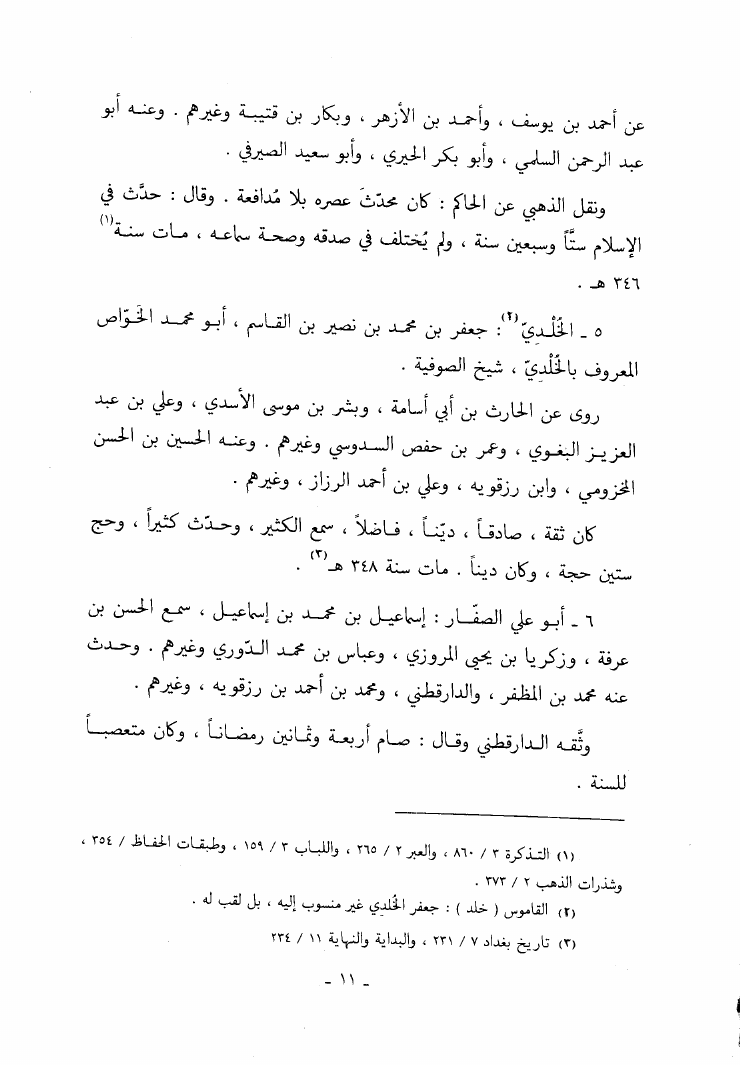 عن أحمد بن يوسف ، وأحمد بن الأزهر ، وبكار بن قتيبة وغيرهم . وعنه أبو
عبد الرحمن السلمي ، وأبو بكر الحيري ، وأبو سعيد الصيرفي .
ونقل الذهبي عن الحاكم : كان محدّثَ عصره بلا مُدافعة . وقال : حدَّث في
الإسلام ستَّاً وسبعين سنة ، ولم يُختلف في صدقه وصحة سماعه ، مات سنة(١)
٣٤٦ هـ .
٥ ـ الخُلْديّ(٢): جعفر بن محمد بن نصير بن القاسم ، أبو محمد الخَوّاص
المعروف بالخُلْدِيّ ، شيخ الصوفية .
روى عن الحارث بن أبي أسامة ، وبشر بن موسى الأسدي ، وعلي بن عبد
العزيز البغوي ، وعمر بن حفص السدوسي وغيرهم . وعنه الحسين بن الحسن
المخزومي ، وابن رزقويه ، وعلي بن أحمد الرزاز ، وغيرهم .
كان ثقة ، صادقاً ، ديّناً ، فاضلاً ، سمع الكثير ، وحدّث كثيراً ، وحج
ستين حجة ، وكان ديناً . مات سنة ٣٤٨ هـ(٣) .
٦ ـ أبو علي الصفّار : إسماعيل بن محمد بن إسماعيل ، سمع الحسن بن
عرفة ، وزكريا بن يحيى المروزي ، وعباس بن محمد الدّوري وغيرهم . وحدث
عنه محمد بن المظفر ، والدارقطني ، ومحمد بن أحمد بن رزقويه ، وغيرهم .
وثَّقه الدارقطني وقال : صام أربعة وثمانين رمضاناً ، وكان متعصباً
للسنة .
(١) التذكرة ٣ / ٨٦٠ ، والعبر ٢ / ٢٦٥ ، واللباب ٣ / ١٥٩ ، وطبقات الحفاظ / ٣٥٤ ،
وشذرات الذهب ٢ / ٣٧٣ .
(٢) القاموس ( خلد ) : جعفر الخُلدي غير منسوب إليه ، بل لقب له .
(٣) تاريخ بغداد ٧ / ٢٣١ ، والبداية والنهاية ١١ / ٢٣٤
ـ ١١ ـ